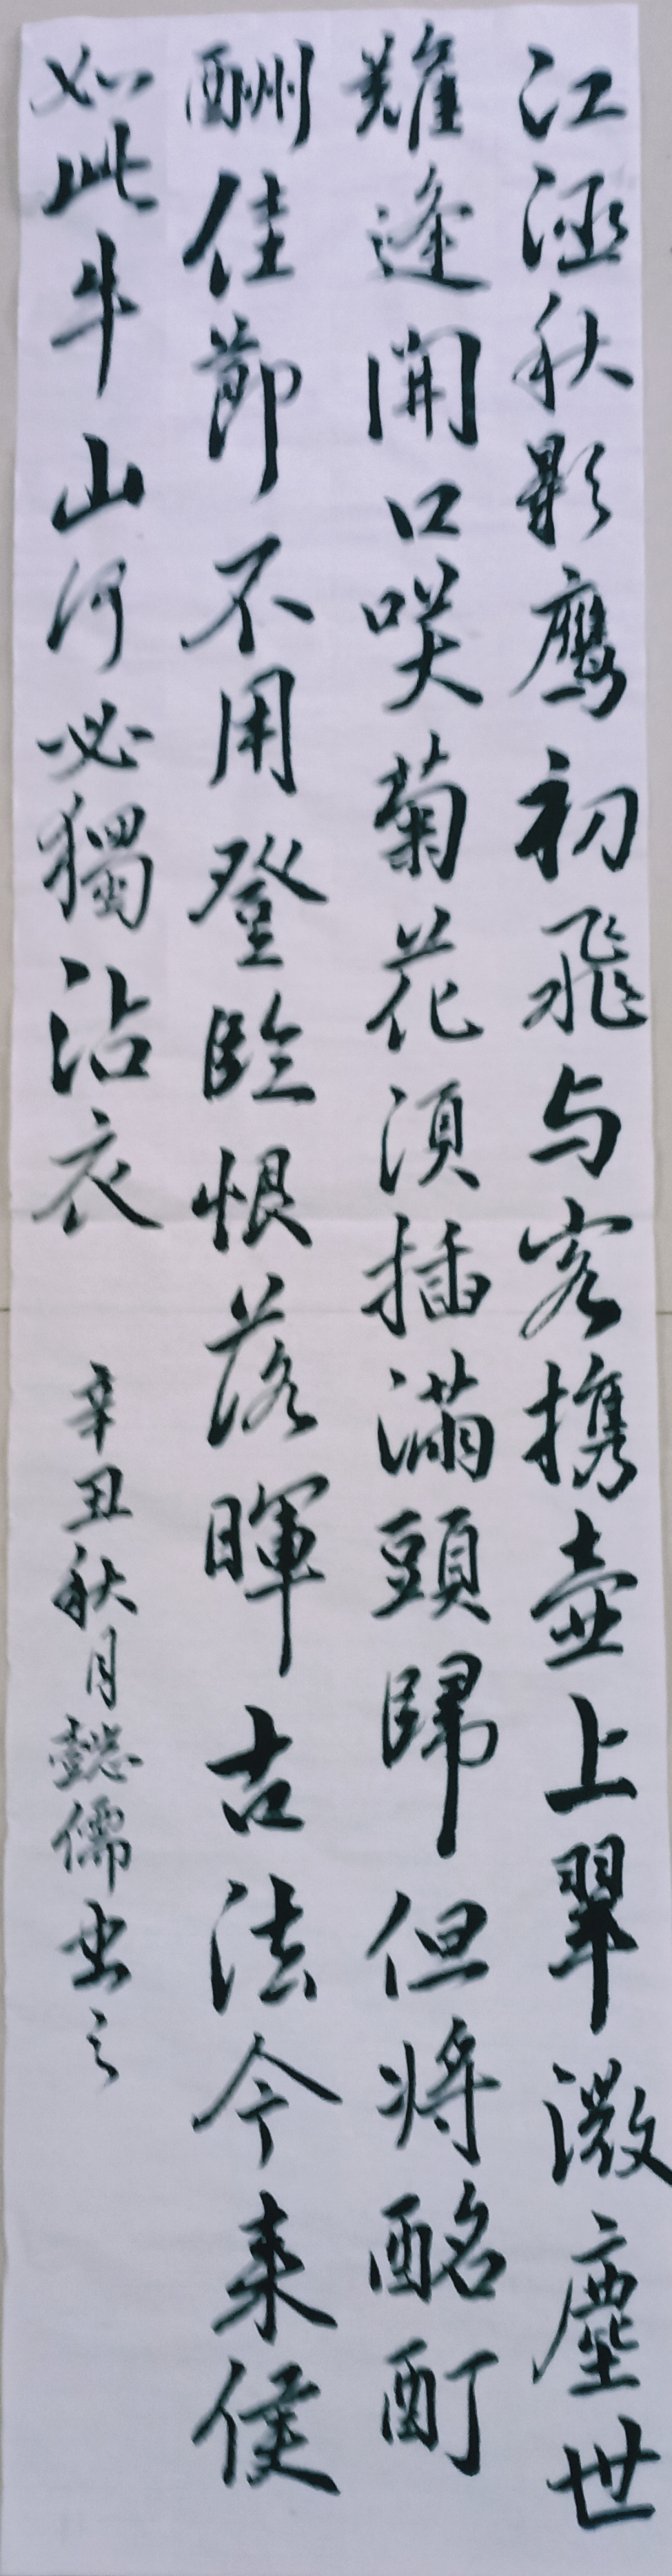 江涵秋影鹰初飛与客携壺上翠澂塵世
難逢開口笑菊花須插滿頭歸但将酩酊
酬佳節不用登臨恨落暉古法今来僅
如此牛山何必獨沾衣 辛丑秋月懿儒书之